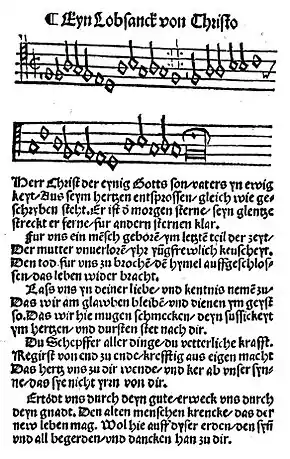 ¶ Eyn Lobsanck von Christo
Herr Christ der eynig Gotts son/vaters yn ewig
keyt/Aus seym hertzen entsprossen/gleich wie ge-
schryben steht. Er ist ď morgen sterne/seyn glentze
streckt er ferne/fur andern sternen klar.
Fur uns ein mēsch geborē/ym letztē teil der zeyt/
Der mutter unuerlorē/yhr yūgfrewlich keuscheyt.
Den tod fur uns zu brochē/dē hymel auffgeschlos-
sen/das leben wider bracht.
Lass uns yn deiner liebe/und kentnis nemē zu/
Das wir am glawben bleibē/und dienen ym geyst
so. Das wir hie mugen schmecken/deyn sussickeyt
ym hertzen/und dursten stet nach dir.
Du Schepffer aller dinge/du vetterliche krafft.
Regirst von end zu ende/krefftig aus eigen macht
Das hertz uns zu dir wende/und ker ab unser syn-
ne/das sye nicht yrrn von dir.
Ertödt uns durch deyn gute/erweck uns durch
deyn gnadt. Den alten menschen krencke/das der
new leben mag. Wol hie auff dyser erden/den syn
und all begerden/und dancken han zu dir.